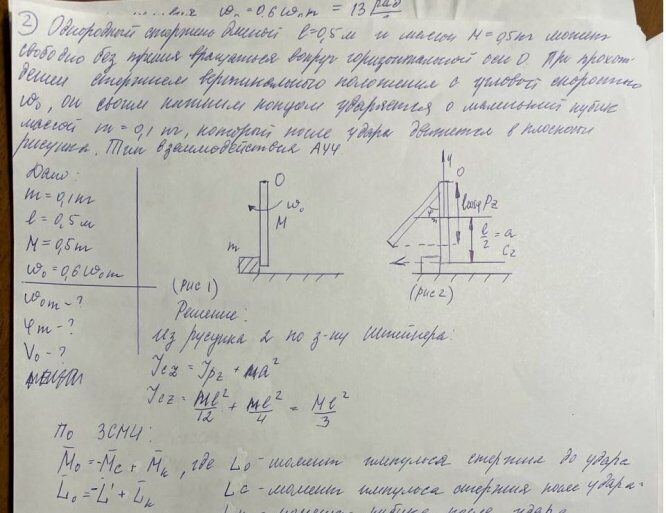 ω₀ = 0,6 ω₀m = 13 рад/с
② Однородный стержень длиной l=0,5м и массой M=0,5кг может
свободно без трения вращаться вокруг горизонтальной оси O. При прохож-
дении стержнем вертикального положения с угловой скоростью
ω₀, он своим нижним концом ударяется о маленький кубик
массой m=0,1 кг, который после удара движется в плоскости
рисунка. Тип взаимодействия АУУ
Дано:
m=0,1кг
l=0,5м
M=0,5кг
ω₀=0,6ω₀m
ω₀m-?
φm-?
V₀-?
O
ω₀
M
m
(рис1)
y
O
lcosφ
Pz
φm
l/2 = a
Cz
(рис2)
Решение:
Из рисунка 2 по з-ну Штейнера:
Jcz = Jpz + Ma²
Jcz = Ml²/12 + Ml²/4 = Ml²/3
По ЗСМИ:
M̄₀=-M̄c+M̄k, где L₀-момент импульса стержня до удара
L̄₀=-L̄'+L̄k Lc-момент импульса стержня после удара-
кубика после удара